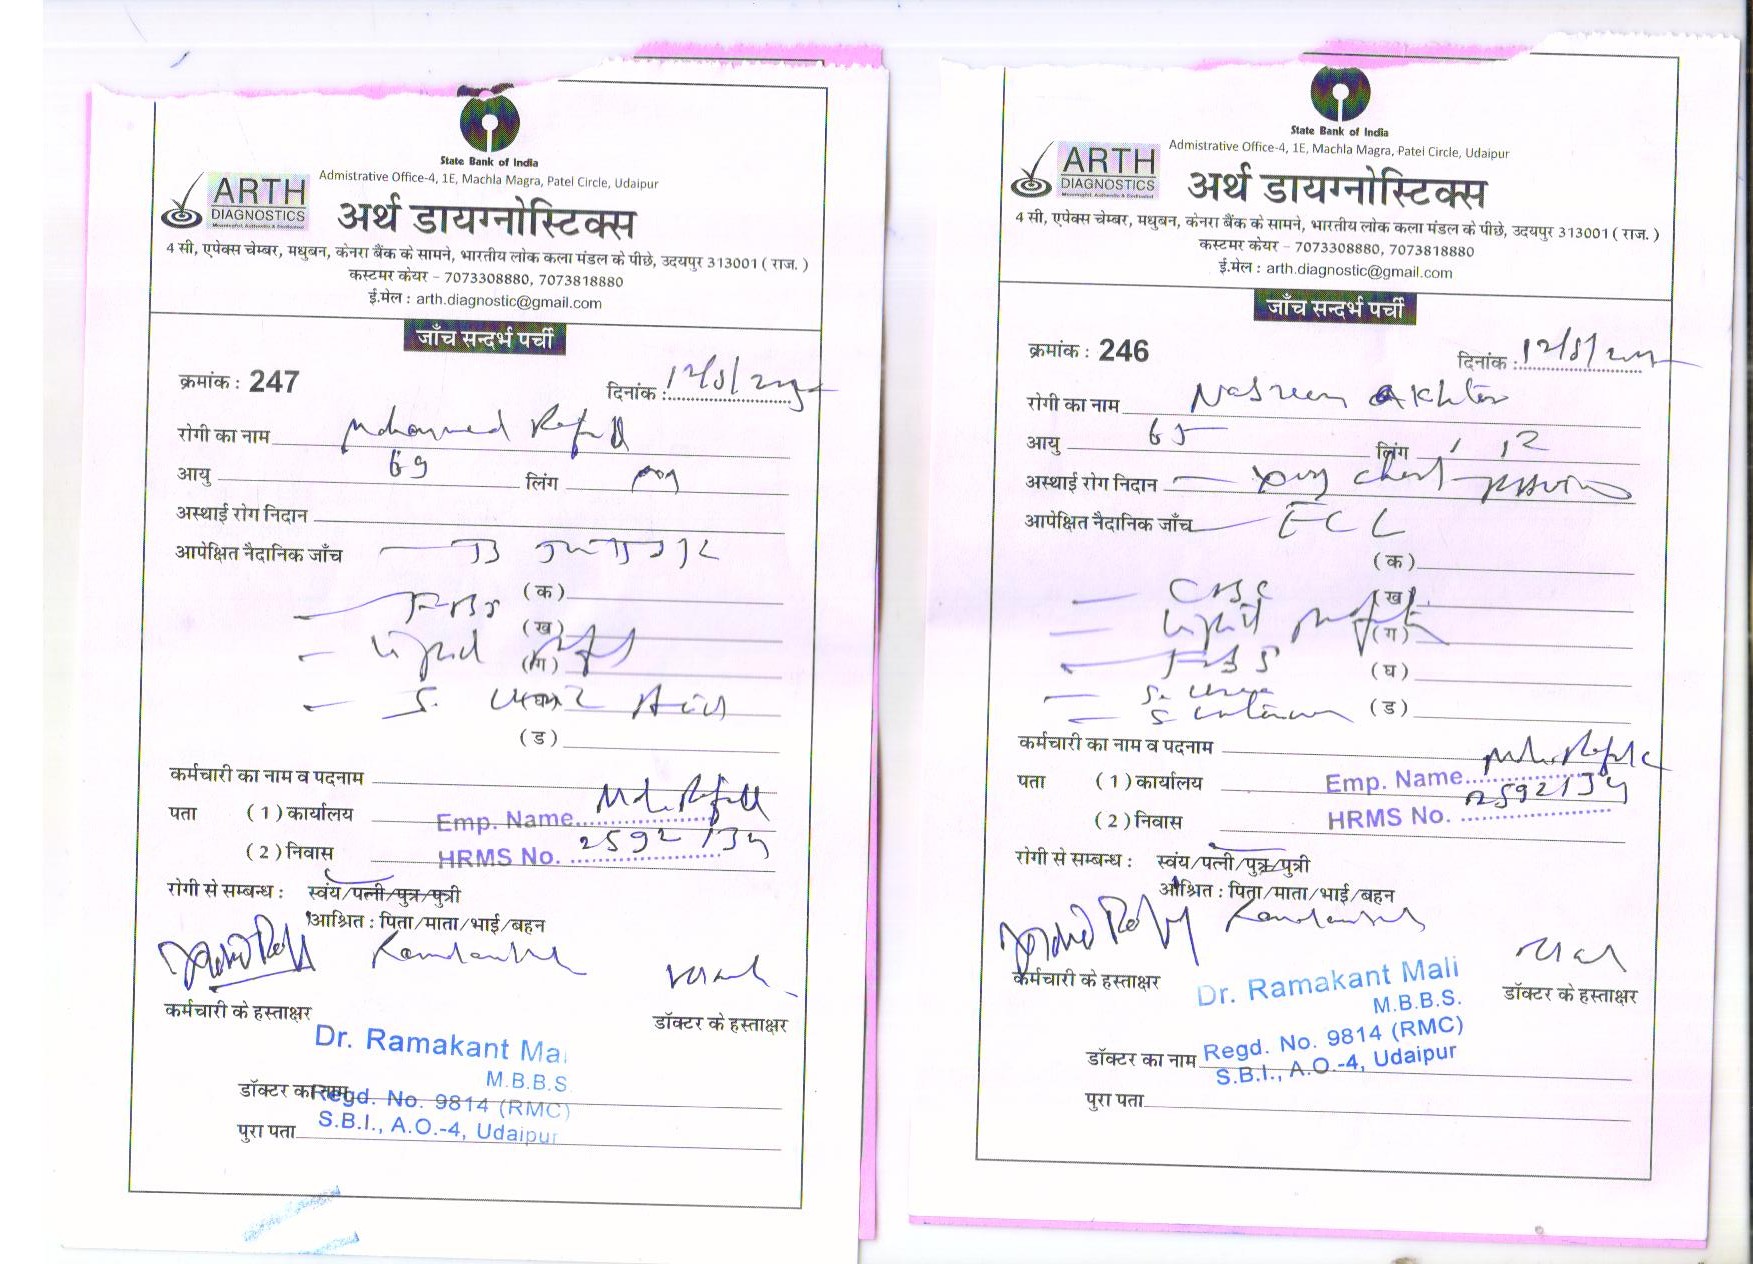 State Bank of India
Admistrative Office-4, 1E, Machla Magra, Patel Circle, Udaipur
ARTH
DIAGNOSTICS
अर्थ डायग्नोस्टिक्स
4 सी, एपेक्स चेम्बर, मधुबन, केनरा बैंक के सामने, भारतीय लोक कला मंडल के पीछे, उदयपुर 313001 ( राज. )
कस्टमर केयर – 7073308880, 7073818880
ई.मेल : arth.diagnostic@gmail.com
जाँच सन्दर्भ पर्ची
क्रमांक : 247
दिनांक : 12/8/
रोगी का नाम Mohamed Rafik
आयु 69 लिंग
अस्थाई रोग निदान
आपेक्षित नैदानिक जाँच
( क )
FBS
( ख )
Lipid ( ग )
S. Acid
( ड )
कर्मचारी का नाम व पदनाम
पता ( 1 ) कार्यालय Emp. Name
( 2 ) निवास HRMS No. 2592134
रोगी से सम्बन्ध : स्वंय/पत्नी/पुत्र/पुत्री
आश्रित : पिता/माता/भाई/बहन
कर्मचारी के हस्ताक्षर
डॉक्टर के हस्ताक्षर
Dr. Ramakant Mal
M.B.B.S
डॉक्टर का नाम Regd. No. 9814 (RMC)
पुरा पता S.B.I., A.O.-4, Udaipur
State Bank of India
Admistrative Office-4, 1E, Machla Magra, Patel Circle, Udaipur
ARTH
DIAGNOSTICS
अर्थ डायग्नोस्टिक्स
4 सी, एपेक्स चेम्बर, मधुबन, केनरा बैंक के सामने, भारतीय लोक कला मंडल के पीछे, उदयपुर 313001 ( राज. )
कस्टमर केयर – 7073308880, 7073818880
ई.मेल : arth.diagnostic@gmail.com
जाँच सन्दर्भ पर्ची
क्रमांक : 246
दिनांक : 12/8/
रोगी का नाम Nasreen Akhtar
आयु 65 लिंग
अस्थाई रोग निदान Chest
आपेक्षित नैदानिक जाँच
( क )
CBC ( ख )
Lipid profile ( ग )
FBS ( घ )
S. Urea
( ड )
कर्मचारी का नाम व पदनाम
पता ( 1 ) कार्यालय Emp. Name
( 2 ) निवास HRMS No. 2592134
रोगी से सम्बन्ध : स्वंय/पत्नी/पुत्र/पुत्री
आश्रित : पिता/माता/भाई/बहन
कर्मचारी के हस्ताक्षर
डॉक्टर के हस्ताक्षर
Dr. Ramakant Mali
M.B.B.S.
डॉक्टर का नाम Regd. No. 9814 (RMC)
S.B.I., A.O.-4, Udaipur
पुरा पता